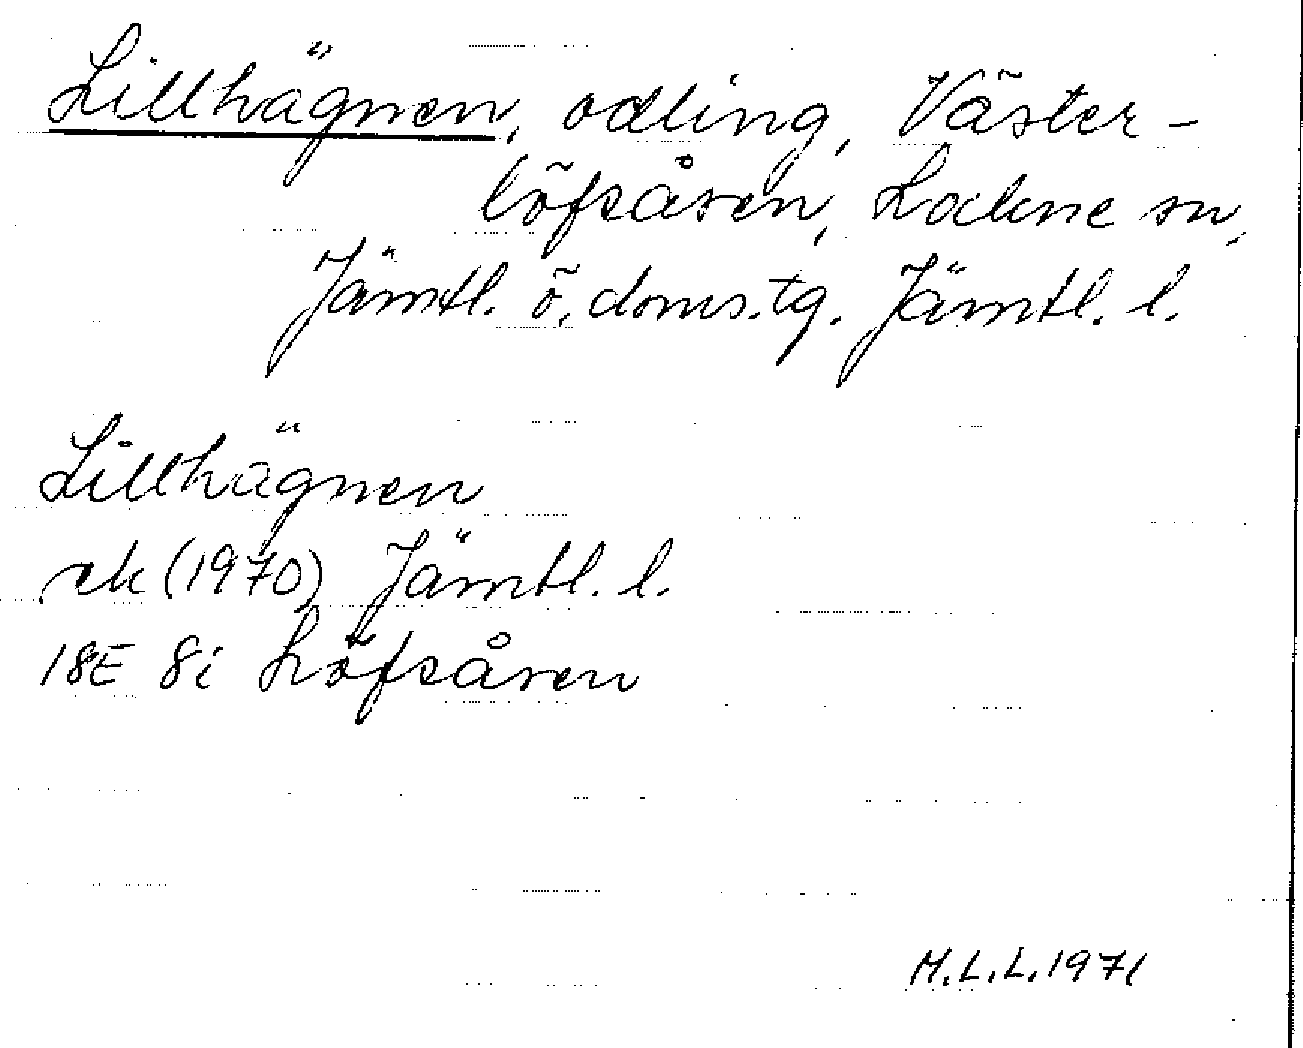 Lillhägnen, odling, Väster-
löfsåsen, Lockne sn,
Jämtl. ö. doms.tg. Jämtl. l.
Lillhägnen
ek (1970) Jämtl. l.
18E 8i Löfsåsen
M.L.L. 1971